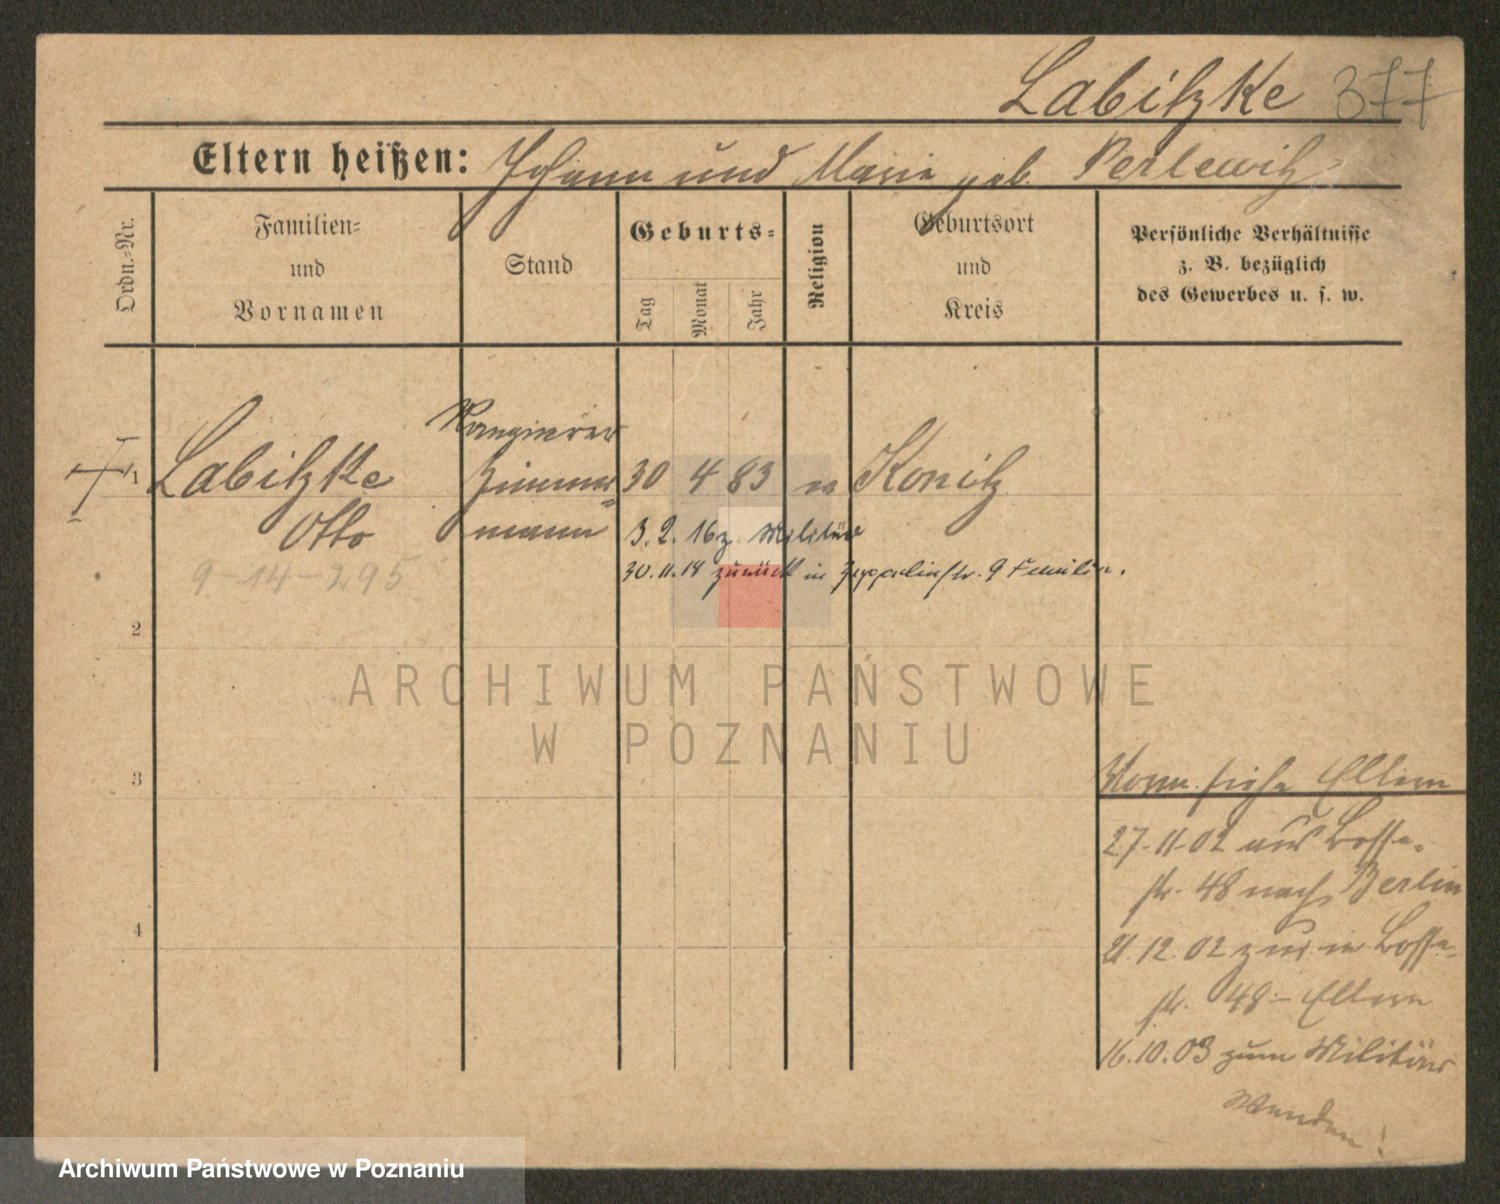 Labitzke 377
Eltern heißen: Johann und Marie geb. Perlewitz
Ordn.-Nr.
Familien-
und
Vornamen
Stand
Geburts-
Tag
Monat
Jahr
Religion
Geburtsort
und
Kreis
Persönliche Verhältnisse
z. B. bezüglich
des Gewerbes u. s. w.
Rangierer
1 Labitzke Zimmer- 30 4 83 ev Konitz
Otto mann 3.2.16 z. Militär
9-14-295
30.11.18 zurück in Zeppelinstr. 9 Familie.
2
ARCHIWUM PAŃSTWOWE
W POZNANIU
3
Vorm. siehe Eltern
27.11.02 aus Bosse-
str. 48 nach Berlin
4
21.12.02 zur. in Bosse-
str. 48 – Eltern
16.10.03 zum Militär
Wenden!
Archiwum Państwowe w Poznaniu